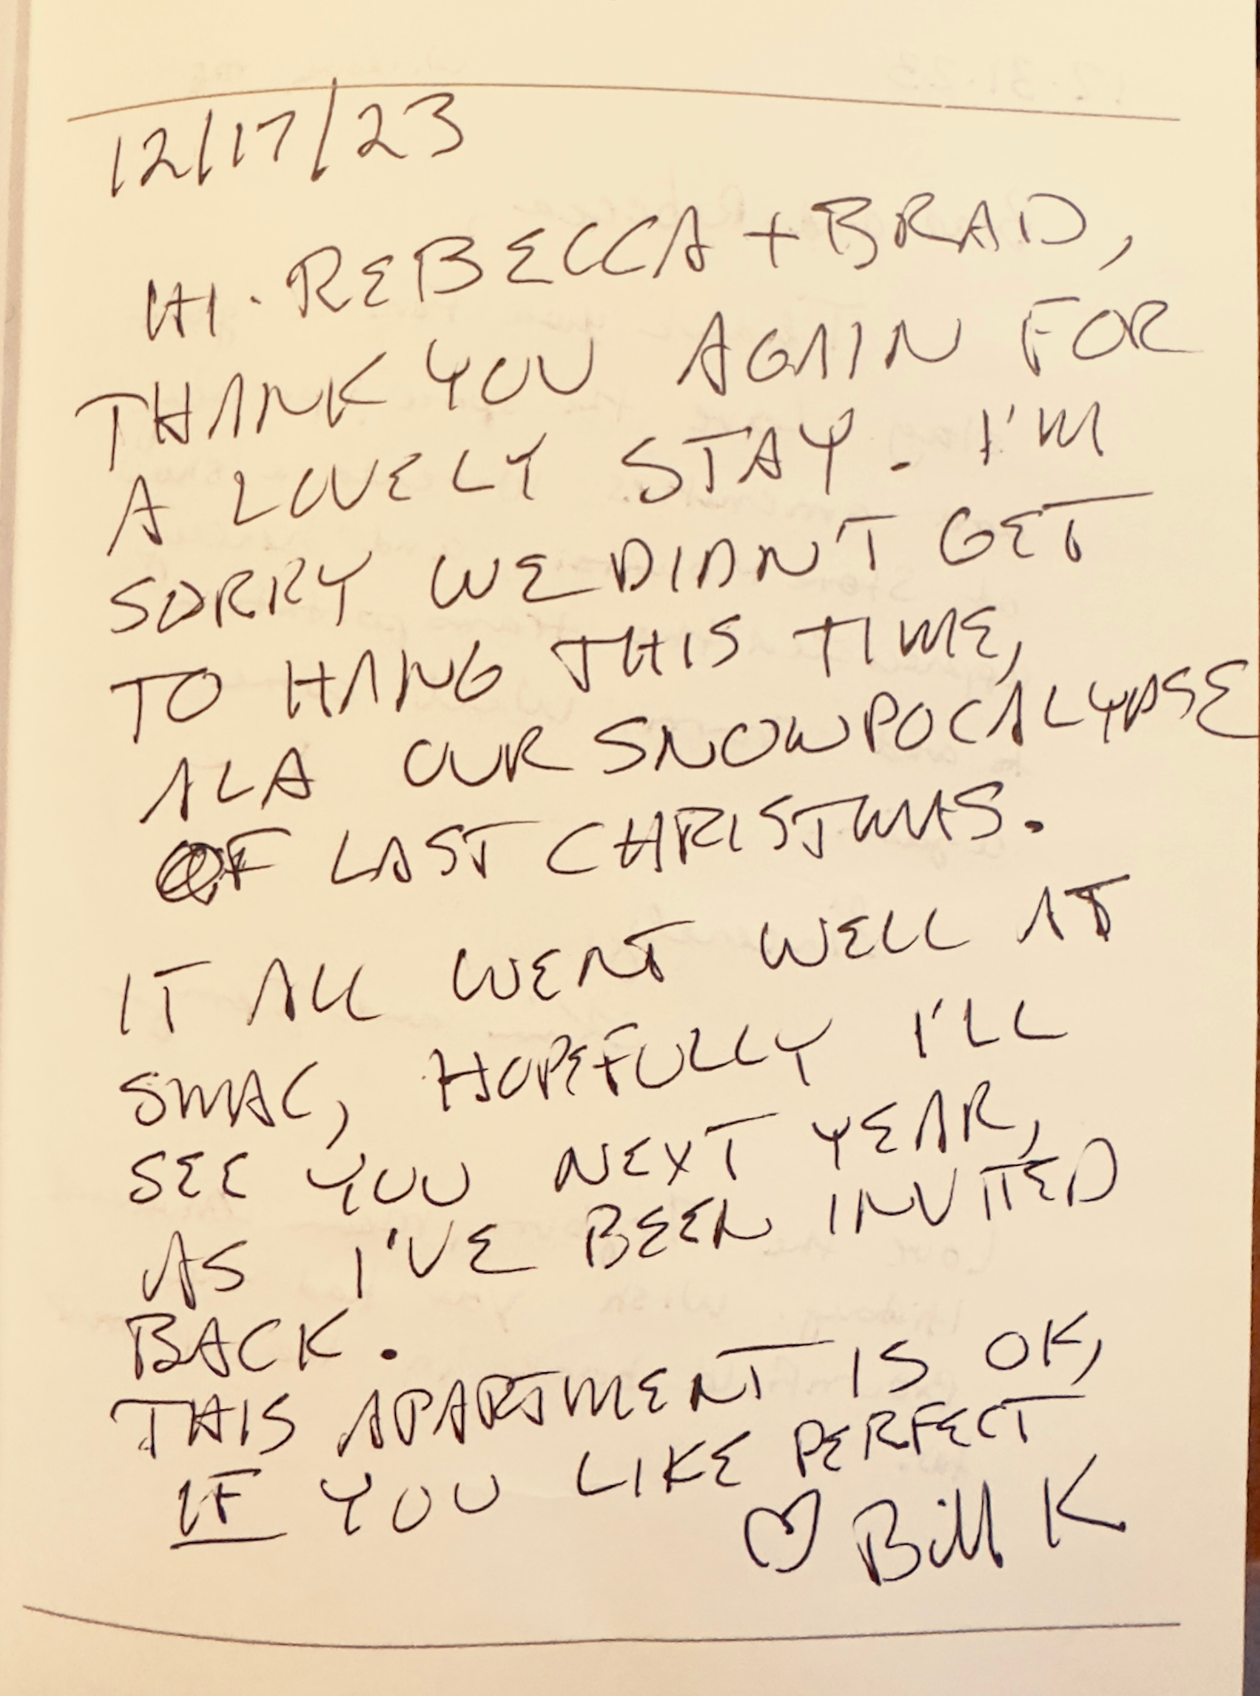 12/17/23
HI. REBECCA + BRAD,
THANK YOU AGAIN FOR
A LOVELY STAY. I'M
SORRY WE DIDN'T GET
TO HANG THIS TIME,
ALA OUR SNOWPOCALYPSE
OF LAST CHRISTMAS.
IT ALL WENT WELL AT
SMAC, HOPEFULLY I'LL
SEE YOU NEXT YEAR,
AS I'VE BEEN INVITED
BACK.
THIS APARTMENT IS OK,
IF YOU LIKE PERFECT
♡ Bill K